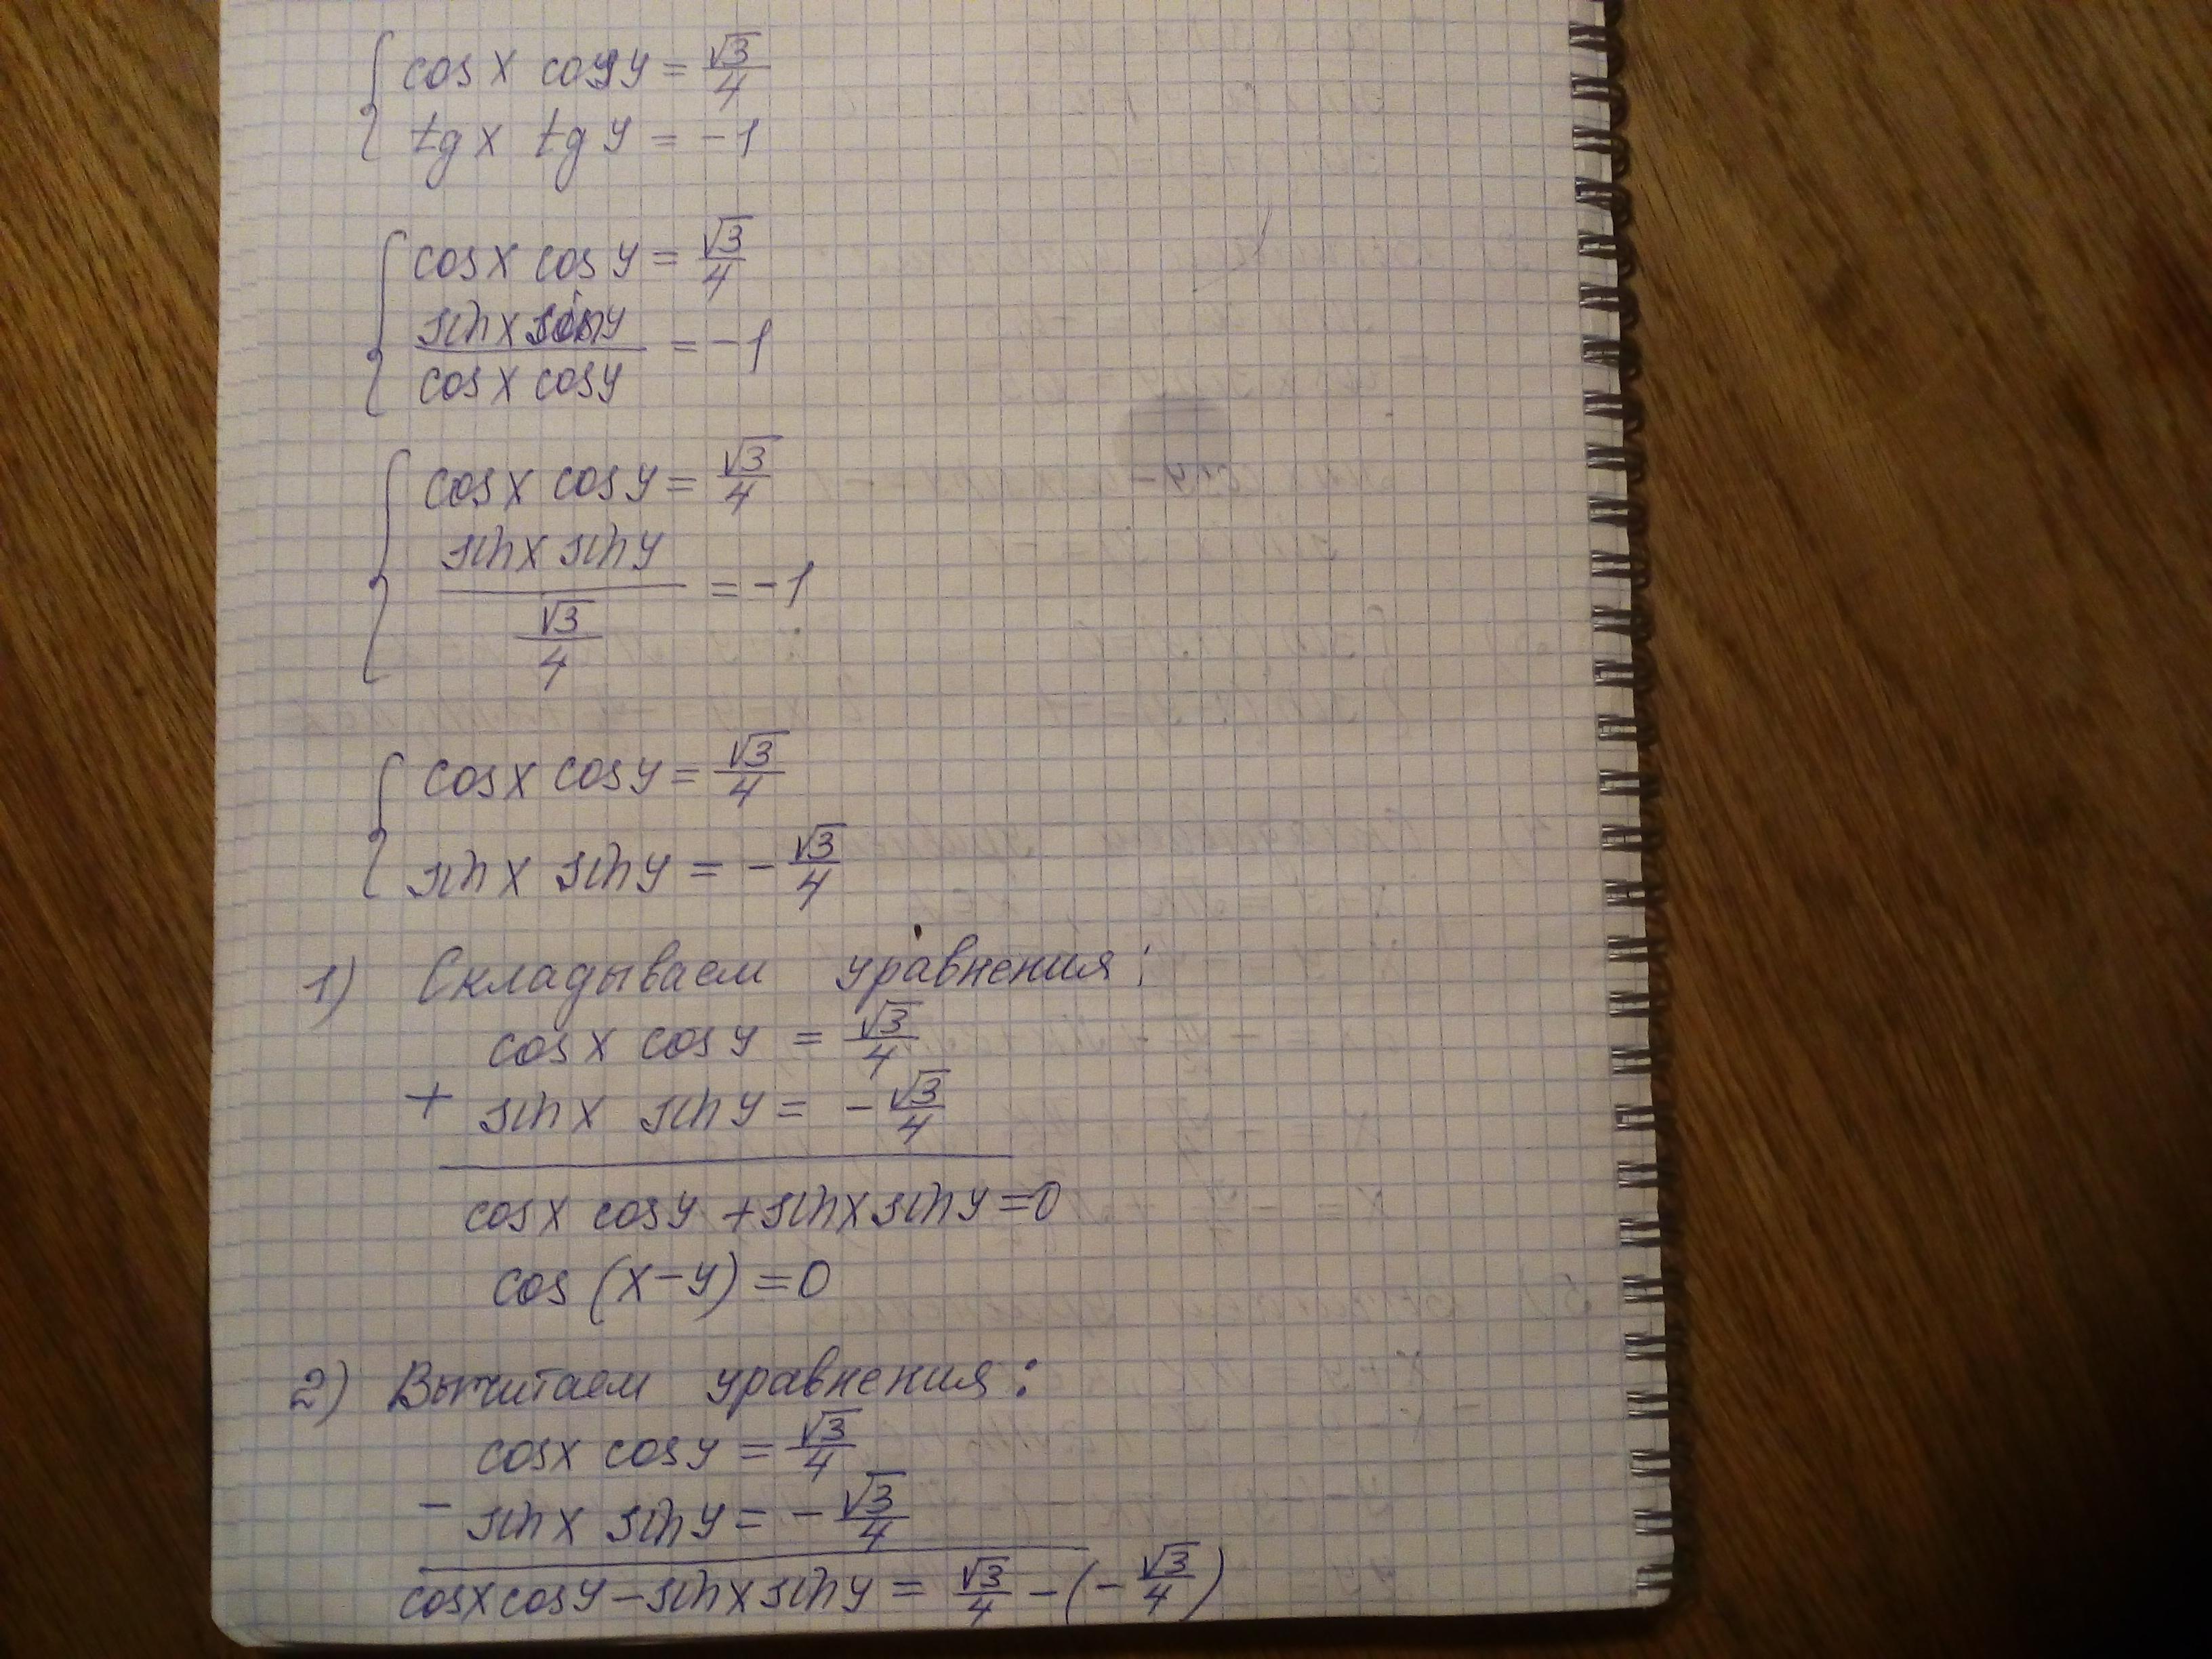 { cos x cos y = √3/4
tg x tg y = -1
{ cos x cos y = √3/4
sin x sin y / cos x cos y = -1
{ cos x cos y = √3/4
sin x sin y / (√3/4) = -1
{ cos x cos y = √3/4
sin x sin y = - √3/4
1) Складываем уравнения:
cos x cos y = √3/4
+ sin x sin y = - √3/4
cos x cos y + sin x sin y = 0
cos (x-y) = 0
2) Вычитаем уравнения:
cos x cos y = √3/4
- sin x sin y = - √3/4
cos x cos y - sin x sin y = √3/4 - (- √3/4)